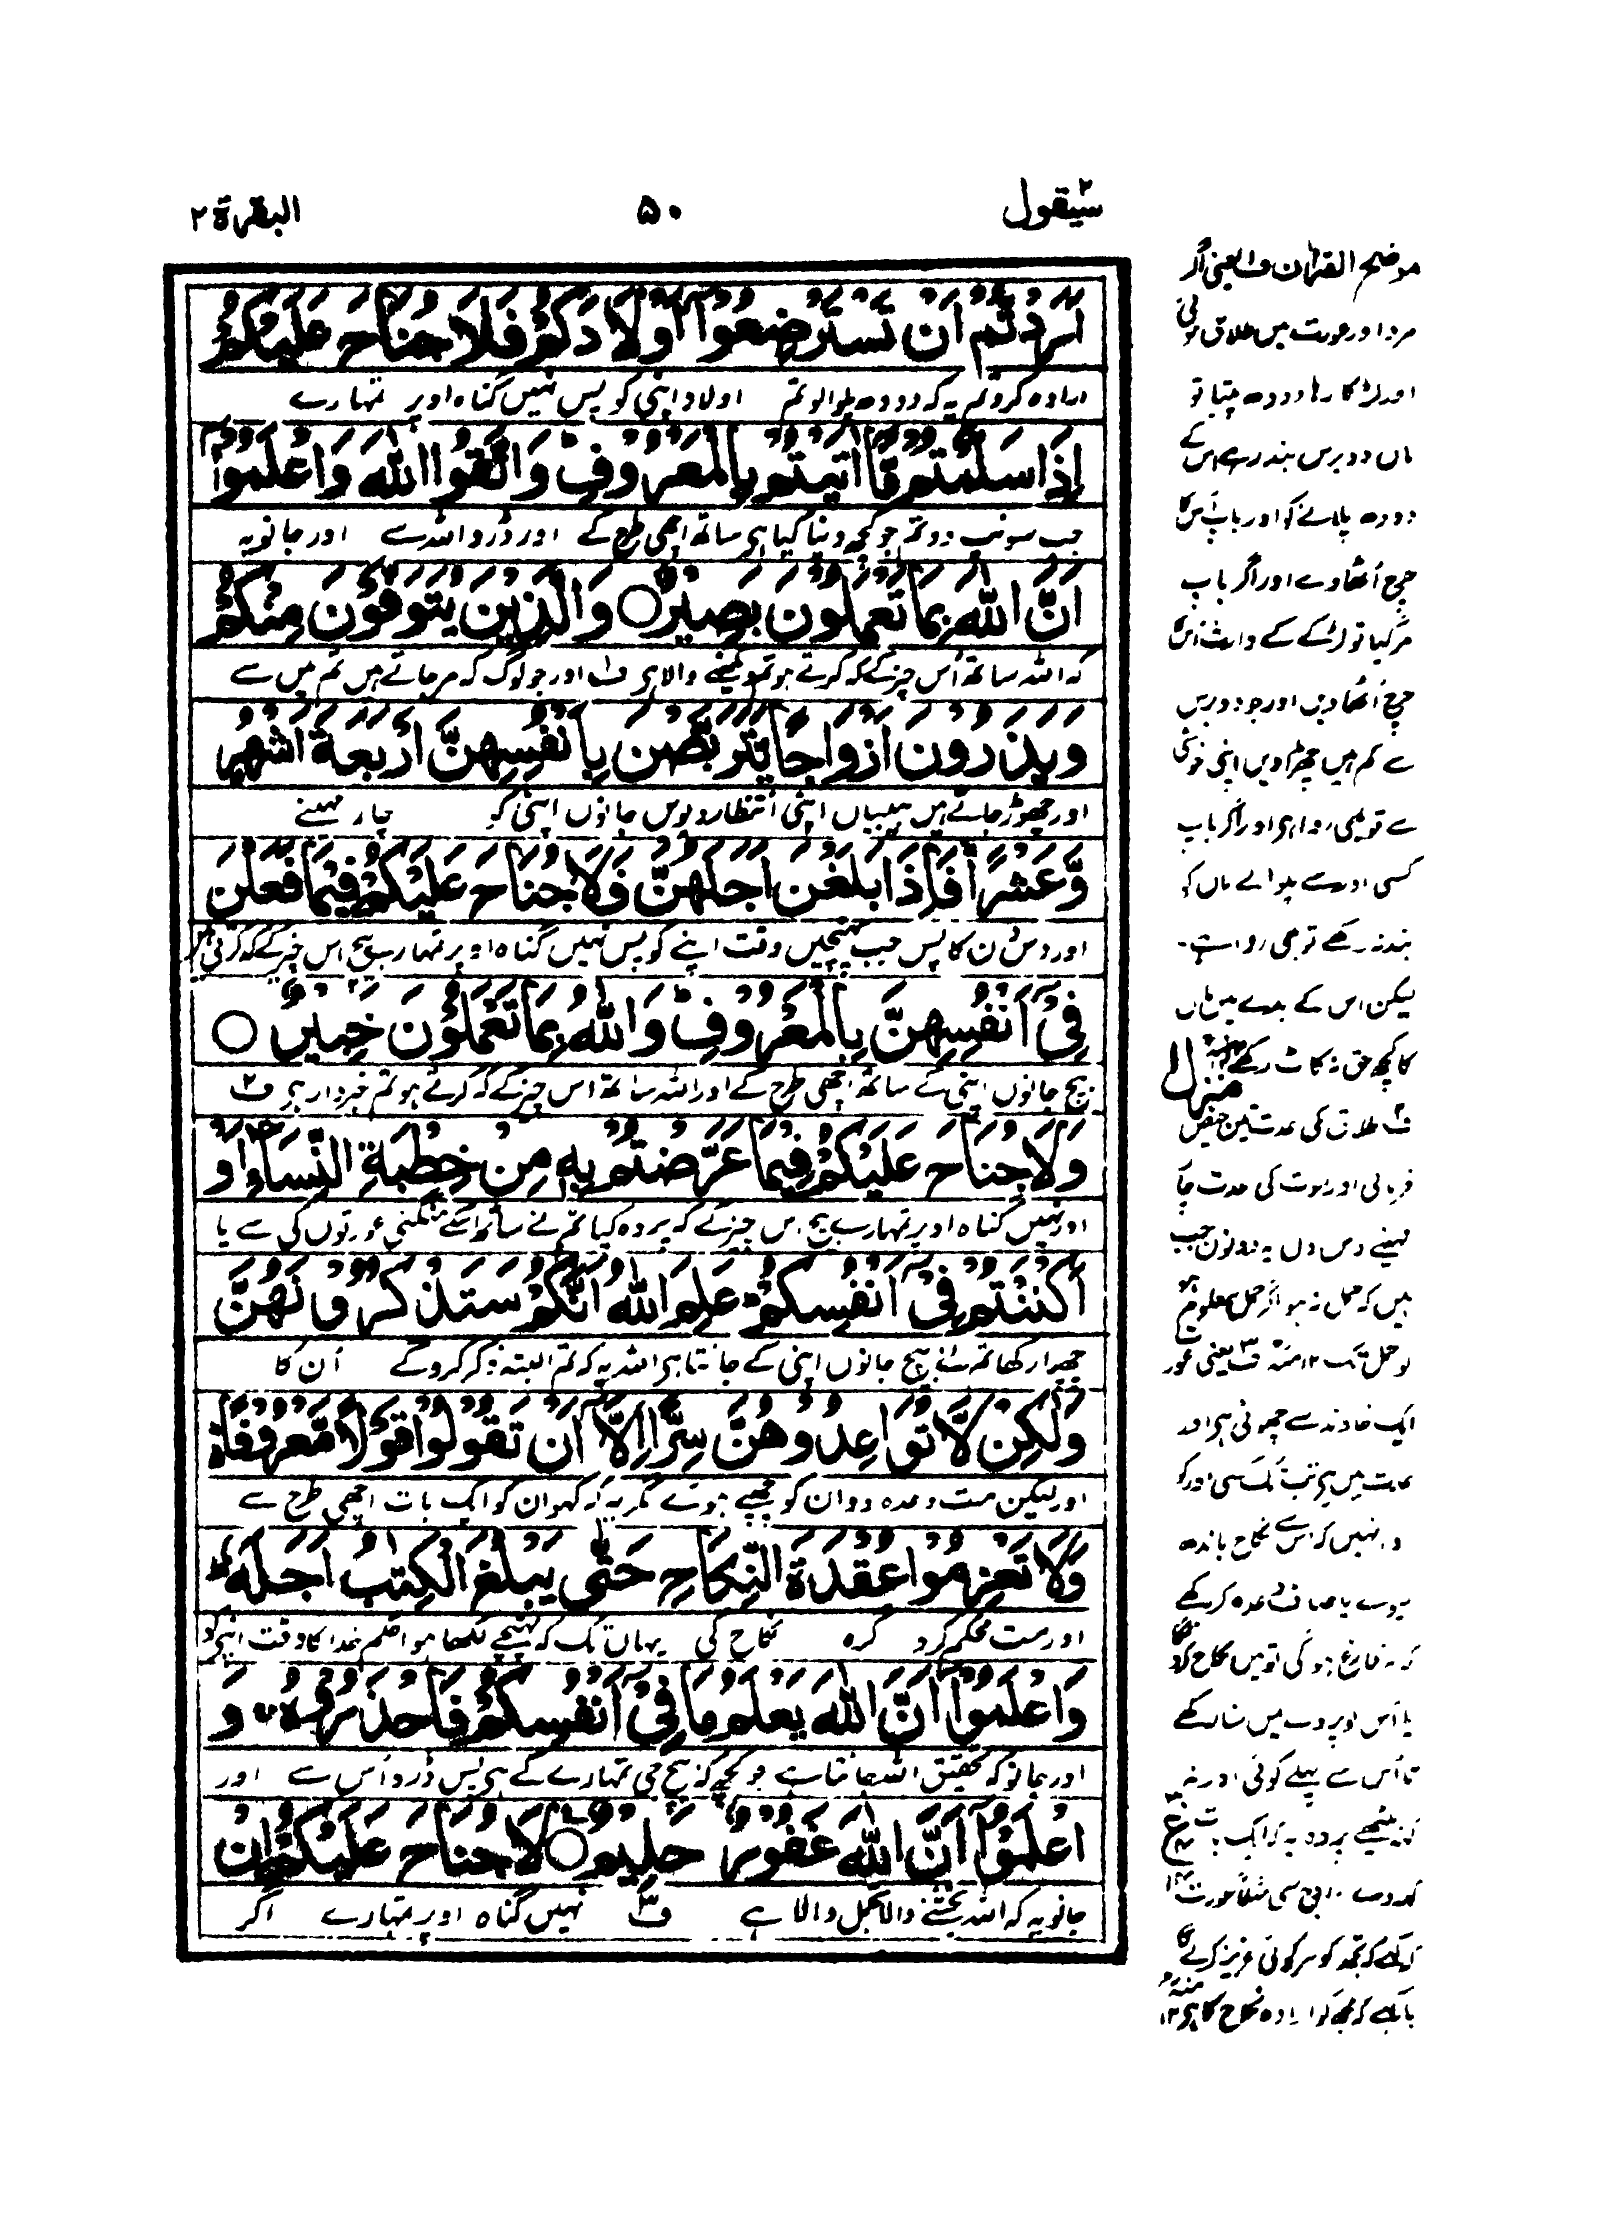 سیقول ٢
۵۰
البقرة ٢
اَرَدْتُّمْ اَنْ تَسْتَرْضِعُوْۤا اَوْلَادَكُمْ فَلَا جُنَاحَ عَلَيْكُمْ
ارادہ کرو تم یہ کہ دودھ پلوا لو تم اولاد اپنی کو پس نہیں گناہ اوپر تمہارے
اِذَا سَلَّمْتُمْ مَّاۤ اٰتَيْتُمْ بِالْمَعْرُوْفِ ؕ وَاتَّقُوا اللّٰهَ وَاعْلَمُوْۤا
جب سونپ دو تم جو کچھ دینا کیا ہے ساتھ اچھی طرح کے اور ڈرو اللہ سے اور جانو یہ
اَنَّ اللّٰهَ بِمَا تَعْمَلُوْنَ بَصِيْرٌ ○ وَالَّذِيْنَ يُتَوَفَّوْنَ مِنْكُمْ
کہ اللہ ساتھ اُس چیز کے کہ کرتے ہو تم دیکھنے والا ہے ف۱ اور جو لوگ کہ مر جاتے ہیں تم میں سے
وَيَذَرُوْنَ اَزْوَاجًا يَّتَرَبَّصْنَ بِاَنْفُسِهِنَّ اَرْبَعَةَ اَشْهُرٍ
اور چھوڑ جاتے ہیں بیبیاں اپنی انتظار دلویں جانوں اپنی کو چار مہینے
وَّعَشْرًا ۚ فَاِذَا بَلَغْنَ اَجَلَهُنَّ فَلَا جُنَاحَ عَلَيْكُمْ فِيْمَا فَعَلْنَ
اور دس دن کا پس جب پہنچیں وقت اپنے کو پس نہیں گناہ اوپر تمہارے بیچ اس چیز کے کہ کرتی ہیں
فِيْۤ اَنْفُسِهِنَّ بِالْمَعْرُوْفِ ؕ وَاللّٰهُ بِمَا تَعْمَلُوْنَ خَبِيْرٌ ○
بیچ جانوں اپنی کے ساتھ اچھی طرح کے اور اللہ ساتھ اس چیز کے کہ کرتے ہو تم خبردار ہے ف۲
وَلَا جُنَاحَ عَلَيْكُمْ فِيْمَا عَرَّضْتُمْ بِهٖ مِنْ خِطْبَةِ النِّسَآءِ اَوْ
اور نہیں گناہ اوپر تمہارے بیچ اس چیز کے کہ پردہ کیا تم نے ساتھ اسکے منگنی عورتوں کی سے یا
اَكْنَنْتُمْ فِيْۤ اَنْفُسِكُمْ ؕ عَلِمَ اللّٰهُ اَنَّكُمْ سَتَذْكُرُوْنَهُنَّ
چھپا رکھا تم نے بیچ جانوں اپنی کے جانتا ہے اللہ یہ کہ تم البتہ ذکر کرو گے اُن کا
وَلٰكِنْ لَّا تُوَاعِدُوْهُنَّ سِرًّا اِلَّاۤ اَنْ تَقُوْلُوْا قَوْلًا مَّعْرُوْفًا ؕ
اور لیکن مت وعدہ دو ان کو چھپے ہوئے مگر یہ کہ کہو ان کو ایک بات اچھی طرح سے
وَلَا تَعْزِمُوْا عُقْدَةَ النِّكَاحِ حَتّٰى يَبْلُغَ الْكِتٰبُ اَجَلَهٗ ؕ
اور مت محکم کرو گرہ نکاح کی یہاں تک کہ پہنچے لکھا ہوا حکم خدا کا وقت اپنے کو
وَاعْلَمُوْۤا اَنَّ اللّٰهَ يَعْلَمُ مَا فِيْۤ اَنْفُسِكُمْ فَاحْذَرُوْهُ ۚ وَ
اور جانو کہ تحقیق اللہ جانتا ہے جو کچھ کہ بیچ جی تمہارے کے ہے پس ڈرو اُس سے اور
اعْلَمُوْۤا اَنَّ اللّٰهَ غَفُوْرٌ حَلِيْمٌ ○ لَا جُنَاحَ عَلَيْكُمْ اِنْ
جانو یہ کہ اللہ بخشنے والا تحمل والا ہے ف۳ نہیں گناہ اوپر تمہارے اگر
موضح القرآن ف۱ یعنی اگر
مرد اور عورت میں طلاق ہوئی
اور لڑکا رہا دودھ پیتا تو
ماں دو برس بند رہے اس کے
دودھ پلانے کو اور باپ اس کا
خرچ اُٹھاوے اور اگر باپ
مر گیا تو لڑکے کے وارث اس کا
خرچ اُٹھاویں اور جو دو برس
سے کم میں چھڑاویں اپنی خوشی
سے تو بھی روا ہے اور اگر باپ
کسی اور سے پلوائے ماں کو
بند نہ رکھے تو بھی روا ہے۔
لیکن اس کے بدلے میں ماں
کا کچھ حق نہ کاٹ رکھے ۱۲ منہ
منزل ۱
ف۲ طلاق کی عدت تین حیض
فرمائی اور موت کی عدت چار
مہینے دس دن یہ دونوں جب
ہیں کہ حمل نہ ہو اگر حمل معلوم ہو
تو حمل تک ۱۲ منہ ف۳ یعنی عورت
ایک خاوند سے چھوٹی ہے اور
عدت میں ہے تب تک کسی اور کو
روا نہیں کہ اس سے نکاح باندھ
لیوے یا صاف وعدہ کر رکھے